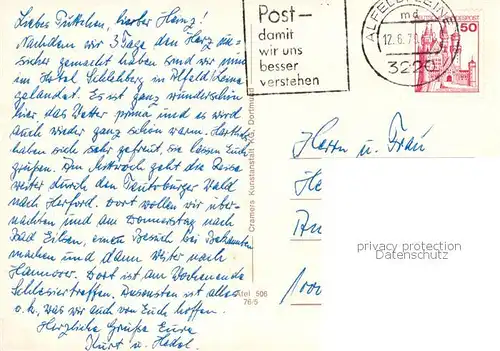 Liebes Püttchen, lieber Heinz!
Nachdem wir 3 Tage den Harz un-
sicher gemacht haben sind wir nun
im Hotel Schlehberg in Alfeld/Leine
gelandet. Es ist ganz wunderschön
hier das Wetter prima und es wird
auch wieder ganz schön warm.
haben sich sehr gefreut, sie lassen Euch
grüßen. Am Mittwoch geht die Reise
weiter durch den Teutoburger Wald
nach Herford. Dort wollen wir über-
nachten und am Donnerstag nach
Bad Eilsen, einen Besuch bei Bekannten
machen und dann weiter nach
Hannover. Dort ist am Wochenende
Schlesiertreffen. Ansonsten ist alles
o.k., was wir auch von Euch hoffen.
Herzliche Grüße Eure
Kurt u. Hedel.
Cramers Kunstanstalt KG, Dortmund
506
76/5
Post–
damit
wir uns
besser
verstehen
ALFELD, LEINE
md
12.6.7
3220
DEUTSCHE BUNDESPOST
50
Herrn u. Frau
He
1000
privacy protection
Datenschutz